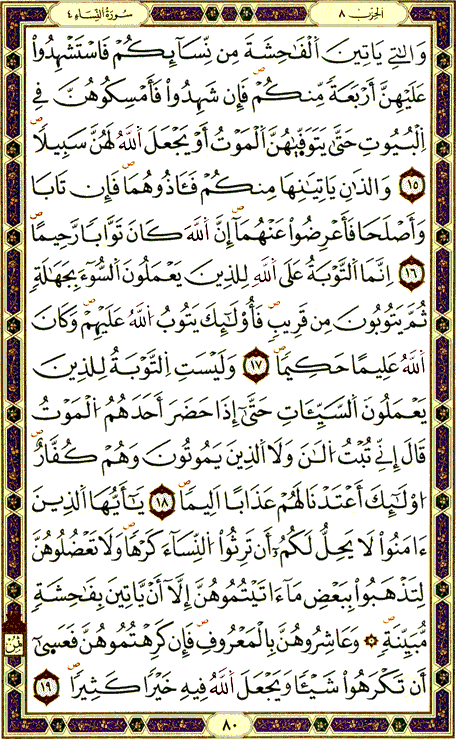 الحزب ٨ سورة النساء ٤
وَالَٰتِے يَاتِينَ اَ۬لْفَٰحِشَةَ مِن نِّسَآئِكُمْ فَاسْتَشْهِدُواْ
عَلَيْهِنَّ أَرْبَعَةٗ مِّنكُمْ فَإِن شَهِدُواْ فَأَمْسِكُوهُنَّ فِے
اِ۬لْبُيُوتِ حَتَّىٰ يَتَوَفَّيٰهُنَّ اَ۬لْمَوْتُ أَوْ يَجْعَلَ اَ۬للَّهُ لَهُنَّ سَبِيلاٗ
١٥ وَالذَٰنِ يَاتِيَٰنِهَا مِنكُمْ فَـَٔاذُوهُمَا فَإِن تَابَا
وَأَصْلَحَا فَأَعْرِضُواْ عَنْهُمَآ إِنَّ اَ۬للَّهَ كَانَ تَوَّاباٗ رَّحِيماٗ
١٦ اِنَّمَا اَ۬لتَّوْبَةُ عَلَى اَ۬للَّهِ لِلذِينَ يَعْمَلُونَ اَ۬لسُّوٓءَ بِجَهَٰلَةٖ
ثُمَّ يَتُوبُونَ مِن قَرِيبٖ فَأُوْلَٰٓئِكَ يَتُوبُ اُ۬للَّهُ عَلَيْهِمْ وَكَانَ
اَ۬للَّهُ عَلِيماً حَكِيماٗ ١٧ وَلَيْسَتِ اِ۬لتَّوْبَةُ لِلذِينَ
يَعْمَلُونَ اَ۬لسَّيِّـَٔاتِ حَتَّىٰٓ إِذَا حَضَرَ أَحَدَهُمُ اُ۬لْمَوْتُ
قَالَ إِنِّے تُبْتُ اُ۬لَٰنَ وَلَا اَ۬لذِينَ يَمُوتُونَ وَهُمْ كُفَّارٌ
ا۟وْلَٰٓئِكَ أَعْتَدْنَا لَهُمْ عَذَاباً اَلِيماٗ ١٨ يَٰٓأَيُّهَا اَ۬لذِينَ
ءَامَنُواْ لَا يَحِلُّ لَكُمُۥٓ أَن تَرِثُواْ اُ۬لنِّسَآءَ كَرْهاٗ وَلَا تَعْضُلُوهُنَّ
لِتَذْهَبُواْ بِبَعْضِ مَآ ءَاتَيْتُمُوهُنَّ إِلَّآ أَنْ يَّاتِينَ بِفَٰحِشَةٖ
مُّبَيِّنَةٖ ۞ وَعَاشِرُوهُنَّ بِالْمَعْرُوفِ فَإِن كَرِهْتُمُوهُنَّ فَعَسَىٰٓ
أَن تَكْرَهُواْ شَيْـٔاٗ وَيَجْعَلَ اَ۬للَّهُ فِيهِ خَيْراٗ كَثِيراٗ ١٩
ثمن
٨٠